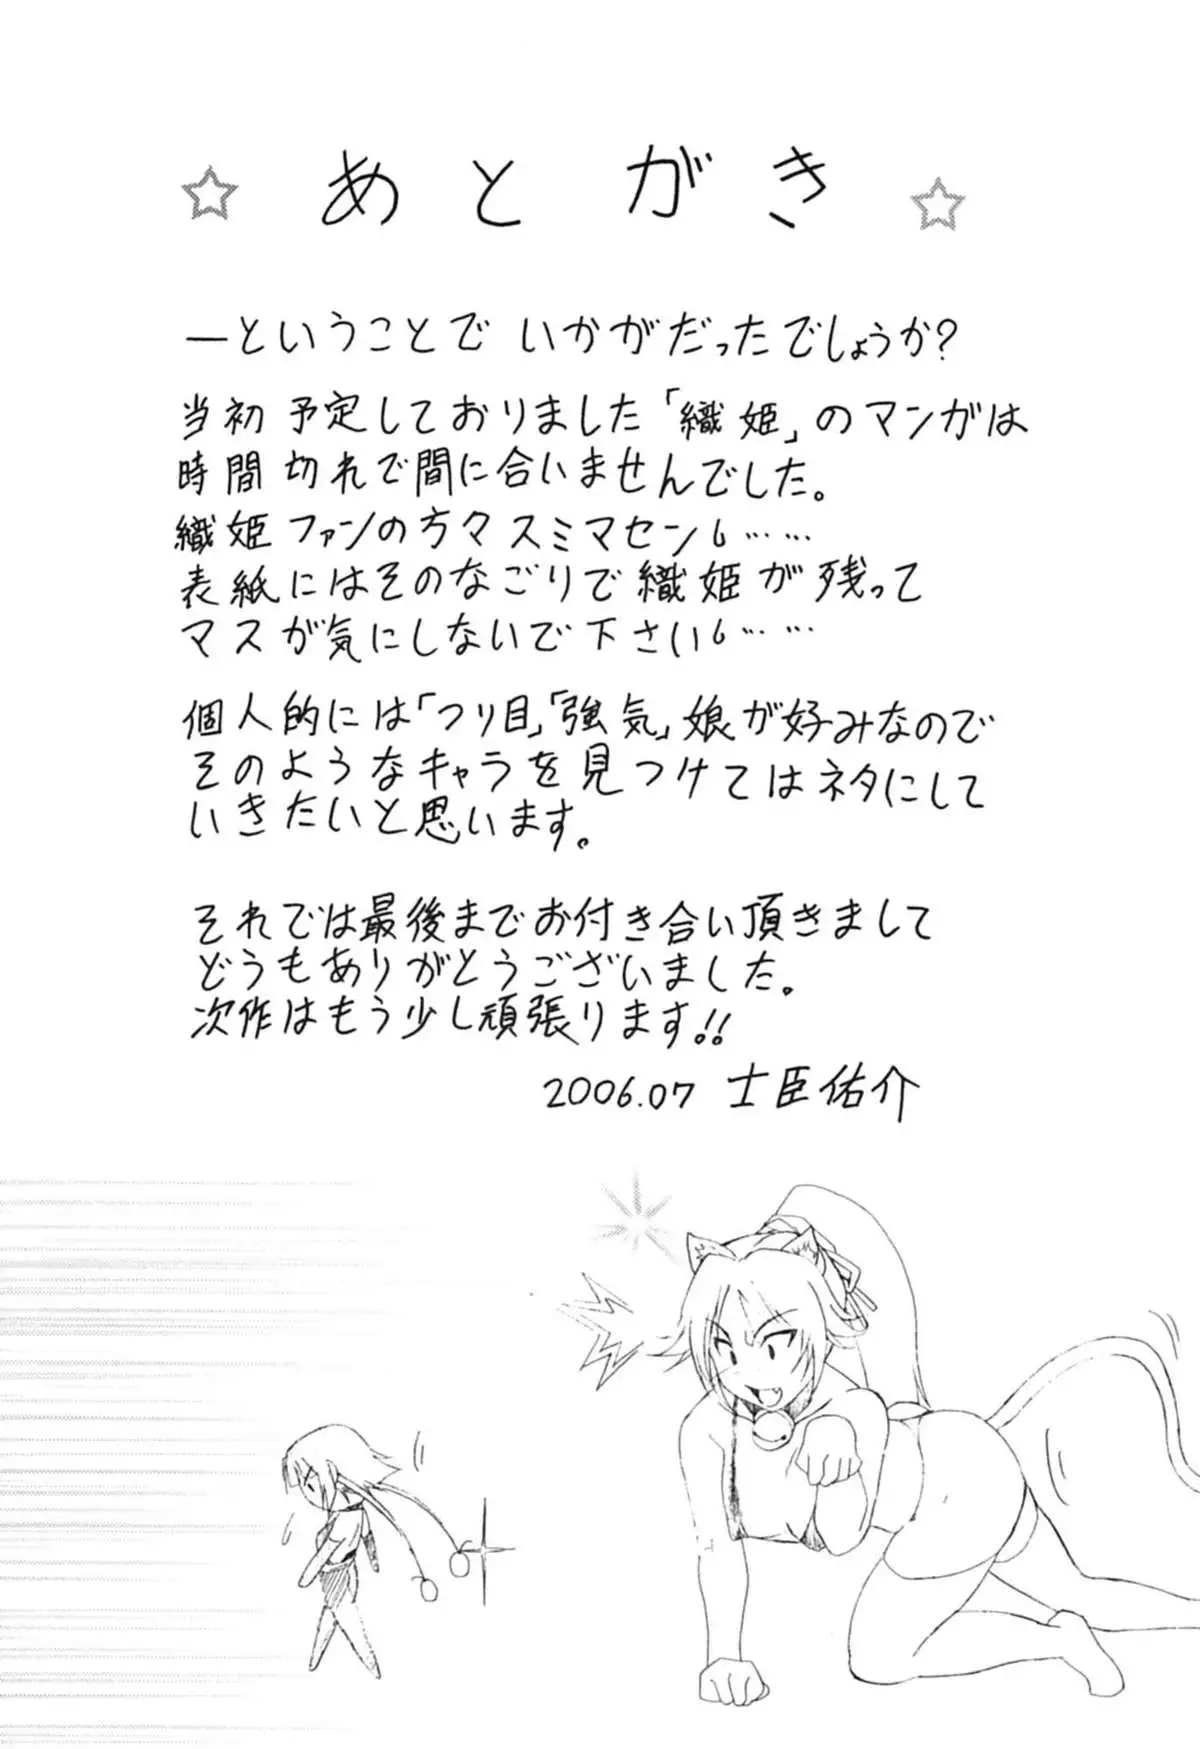 ☆ あとがき ☆
—ということで いかがだったでしょうか?
当初 予定しておりました「織姫」のマンガは
時間 切れで間に合いませんでした。
織姫 ファンの方々スミマセン……
表紙にはそのなごりで織姫が残って
マスが気にしないで下さい……
個人的には「つり目」「強気」娘が好みなので
そのようなキャラを見つけてはネタにして
いきたいと思います。
それでは最後までお付き合い頂きまして
どうもありがとうございました。
次作はもう少し頑張ります!!
2006.07 士臣佑介